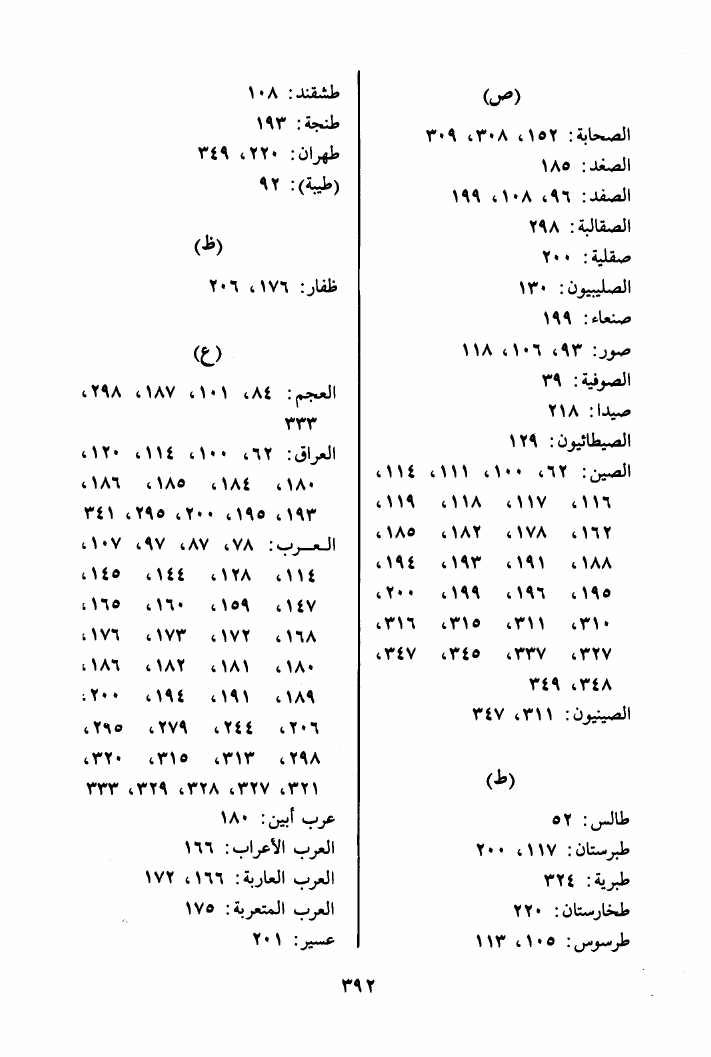 (ص)
الصحابة: ١٥٢، ٣٠٨، ٣٠٩
الصغد: ١٨٥
الصفد: ٩٦، ١٠٨، ١٩٩
الصقالبة: ٢٩٨
صقلية: ٢٠٠
الصليبيون: ١٣٠
صنعاء: ١٩٩
صور: ٩٣، ١٠٦، ١١٨
الصوفية: ٣٩
صيدا: ٢١٨
الصيطائيون: ١٢٩
الصين: ٦٢، ١٠٠، ١١١، ١١٤،
١١٦، ١١٧، ١١٨، ١١٩،
١٦٢، ١٧٨، ١٨٢، ١٨٥،
١٨٨، ١٩١، ١٩٣، ١٩٤،
١٩٥، ١٩٦، ١٩٩، ٢٠٠،
٣١٠، ٣١١، ٣١٥، ٣١٦،
٣٢٧، ٣٣٧، ٣٤٥، ٣٤٧،
٣٤٨، ٣٤٩
الصينيون: ٣١١، ٣٤٧
(ط)
طالس: ٥٢
طبرستان: ١١٧، ٢٠٠
طبرية: ٣٢٤
طخارستان: ٢٢٠
طرسوس: ١٠٥، ١١٣
طشقند: ١٠٨
طنجة: ١٩٣
طهران: ٢٢٠، ٣٤٩
(طيبة): ٩٢
(ظ)
ظفار: ١٧٦، ٢٠٦
(ع)
العجم: ٨٤، ١٠١، ١٨٧، ٢٩٨،
٣٣٣
العراق: ٦٢، ١٠٠، ١١٤، ١٢٠،
١٨٠، ١٨٤، ١٨٥، ١٨٦،
١٩٣، ١٩٥، ٢٠٠، ٢٩٥، ٣٤١
العرب: ٧٨، ٨٧، ٩٧، ١٠٧،
١١٤، ١٢٨، ١٤٤، ١٤٥،
١٤٧، ١٥٩، ١٦٠، ١٦٥،
١٦٨، ١٧٢، ١٧٣، ١٧٦،
١٨٠، ١٨١، ١٨٢، ١٨٦،
١٨٩، ١٩١، ١٩٤، ٢٠٠،
٢٠٦، ٢٤٤، ٢٧٩، ٢٩٥،
٢٩٨، ٣١٣، ٣١٥، ٣٢٠،
٣٢١، ٣٢٧، ٣٢٨، ٣٢٩، ٣٣٣
عرب أبين: ١٨٠
العرب الأعراب: ١٦٦
العرب العاربة: ١٦٦، ١٧٢
العرب المتعربة: ١٧٥
عسير: ٢٠١
٣٩٢